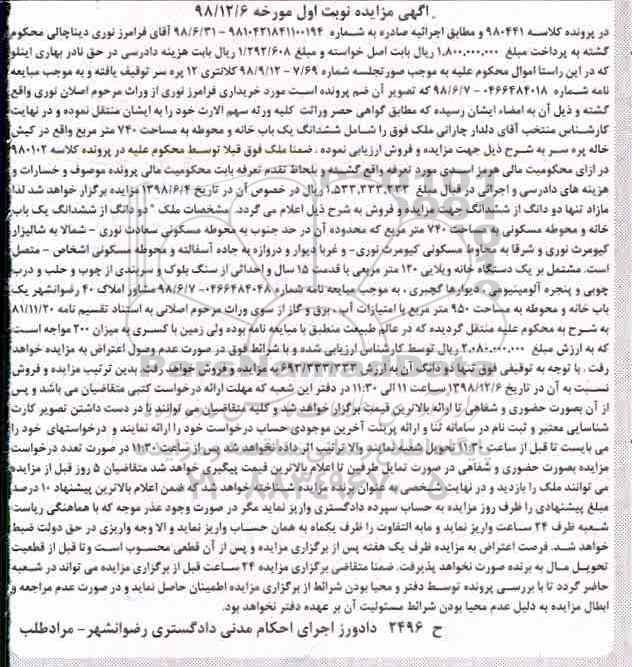 آگهی مزایده نوبت اول مورخه ۹۸/۱۲/۶
در پرونده کلاسه ۹۸۰۴۴۱ و مطابق اجرائیه صادره به شماره ۹۸۱۰۴۲۱۸۴۱۱۰۰۱۹۴ – ۹۸/۶/۳۱ آقای فرامرز نوری دیناچالی محکوم
گشته به پرداخت مبلغ ۱،۸۰۰،۰۰۰،۰۰۰ ریال بابت اصل خواسته و مبلغ ۱/۲۹۲/۶۰۸ ریال بابت هزینه دادرسی در حق نادر بهاری اینلو
که در این راستا اموال محکوم علیه به موجب صورتجلسه شماره ۷/۶۹ – ۹۸/۹/۱۲ کلانتری ۱۲ پره سر توقیف یافته و به موجب مبایعه
نامه شماره ۰۴۶۶۴۸۴۰۱۸ – ۹۸/۶/۷ که تصویر آن ضم پرونده است مورد خریداری فرامرز نوری از وراث مرحوم اصلان نوری واقع
گشته و ذیل آن به امضاء ایشان رسیده که مطابق گواهی حصر وراثت کلیه ورثه سهم الارث خود را به ایشان منتقل نموده و در نهایت
کارشناس منتخب آقای دلدار چارانی ملک فوق را شامل ششدانگ یک باب خانه و محوطه به مساحت ۷۴۰ متر مربع واقع در کیش
خاله پره سر به شرح ذیل جهت مزایده و فروش ارزیابی نموده . ضمنا ملک فوق قبلا توسط محکوم علیه در پرونده کلاسه ۹۸۰۱۰۲
در ازای محکومیت مالی هرمز اسدی مورد تعرف واقع گشته و بلحاظ تقدم تعرفه بابت محکومیت مالی پرونده موصوف و خسارات و
هزینه های دادرسی و اجرائی در قبال مبلغ ۱،۵۳۳،۳۳۳،۳۳۳ ریال در خصوص آن در تاریخ ۱۳۹۸/۶/۴ مزایده برگزار خواهد شد لذا
مازاد تنها دو دانگ از ششدانگ جهت مزایده و فروش به شرح ذیل اعلام می گردد. مشخصات ملک " دو دانگ از ششدانگ یک باب
خانه و محوطه مسکونی به مساحت ۷۴۰ متر مربع که محدوده آن در حد جنوب به محوطه مسکونی سعادت نوری – شمالا به شالیزار
کیومرث نوری و شرقا به محاوط مسکونی کیومرث نوری- و غربا دیوار و دروازه به جاده آسفالته و محوطه مسکونی اشخاص – متصل
است. مشتمل بر یک دستگاه خانه ویلایی ۱۲۰ متر مربعی با قدمت ۱۵ سال و احداثی از سنگ بلوک و سربندی از چوب و حلب و درب
چوبی و پنجره آلومینیوم، دیوارها گچبری ، به موجب مبایعه نامه شماره ۰۴۶۶۴۸۴۰۴۸- ۹۸/۶/۷ مشاور املاک ۴۰ رضوانشهر یک
باب خانه و محوطه به مساحت ۹۵۰ متر مربع با امتیازات آب ، برق و گاز از سوی وراث مرحوم اصلانی به استناد تقسیم نامه ۸۱/۱۱/۲۰
به شرح به محکوم علیه منتقل گردیده که در عالم طبیعت منطبق با مبایعه نامه بوده ولی زمین با کسری به میزان ۲۰۰ مواجه است.
که به ارزش مبلغ ۲،۰۸۰،۰۰۰،۰۰۰ ریال توسط کارشناس ارزیابی شده و با شرائط فوق در صورت عدم وصول اعتراض به مزایده خواهد
رفت . با توجه به توقیفی فوق تنها دو دانگ آن به ارزش ۶۹۳/۳۳۳/۳۳۳ به مزایده و فروش خواهد رفت. بدین ترتیب مزایده و فروش
نسبت به آن در تاریخ ۱۳۹۸/۱۲/۶ ساعت ۱۱ الی ۱۱:۳۰ در دفتر این شعبه که مهلت ارائه درخواست کتبی متقاضیان می باشد و پس
از آن بصورت حضوری و شفاهی تا ارائه بالاترین قیمت برگزار خواهد شد و کلیه متقاضیان می توانند با در دست داشتن تصویر کارت
شناسایی معتبر و ثبت نام در سامانه ثنا و ارائه پرینت آخرین موجودی حساب درخواست خود را ارائه نمایند و درخواستهای خود را
می بایست تا قبل از ساعت ۱۱:۳۰ تحویل شعبه نمایند والا ترتیب اثر داده نخواهد شد پس از ساعت ۱۱:۳۰ در صورت تعدد درخواست
مزایده بصورت حضوری و شفاهی در صورت تمایل طرفین تا اعلام بالاترین قیمت پیگیری خواهد شد متقاضیان ۵ روز قبل از مزایده
می توانند ملک را بازدید و در نهایت شخصی به عنوان برنده مزایده شناخته خواهد شد که ضمن اعلام بالاترین پیشنهاد ۱۰ درصد
مبلغ پیشنهادی را ظرف روز مزایده به حساب سپرده دادگستری واریز نماید مگر در صورت وجود عذر موجه که با هماهنگی ریاست
شعبه ظرف ۲۴ ساعت واریز نماید و مابه التفاوت را ظرف یکماه به همان حساب واریز نماید و الا وجه واریزی در حق دولت ضبط
خواهد شد. فرصت اعتراض به مزایده ظرف یک هفته پس از برگزاری مزایده و پس از آن قطعی محسوب است و تا قبل از قطعیت
تحویل مال به برنده صورت نخواهد پذیرفت. ضمنا متقاضی برگزاری مزایده ۲۴ ساعت قبل از برگزاری مزایده می تواند در شعبه
حاضر گردد تا با بررسی پرونده توسط دفتر و محیا بودن شرائط از برگزاری مزایده اطمینان حاصل نماید و در صورت عدم مراجعه و
ابطال مزایده به دلیل عدم محیا بودن شرائط مسئولیت آن بر عهده دفتر نخواهد بود.
ح ۲۴۹۶ دادورز اجرای احکام مدنی دادگستری رضوانشهر– مرادطلب